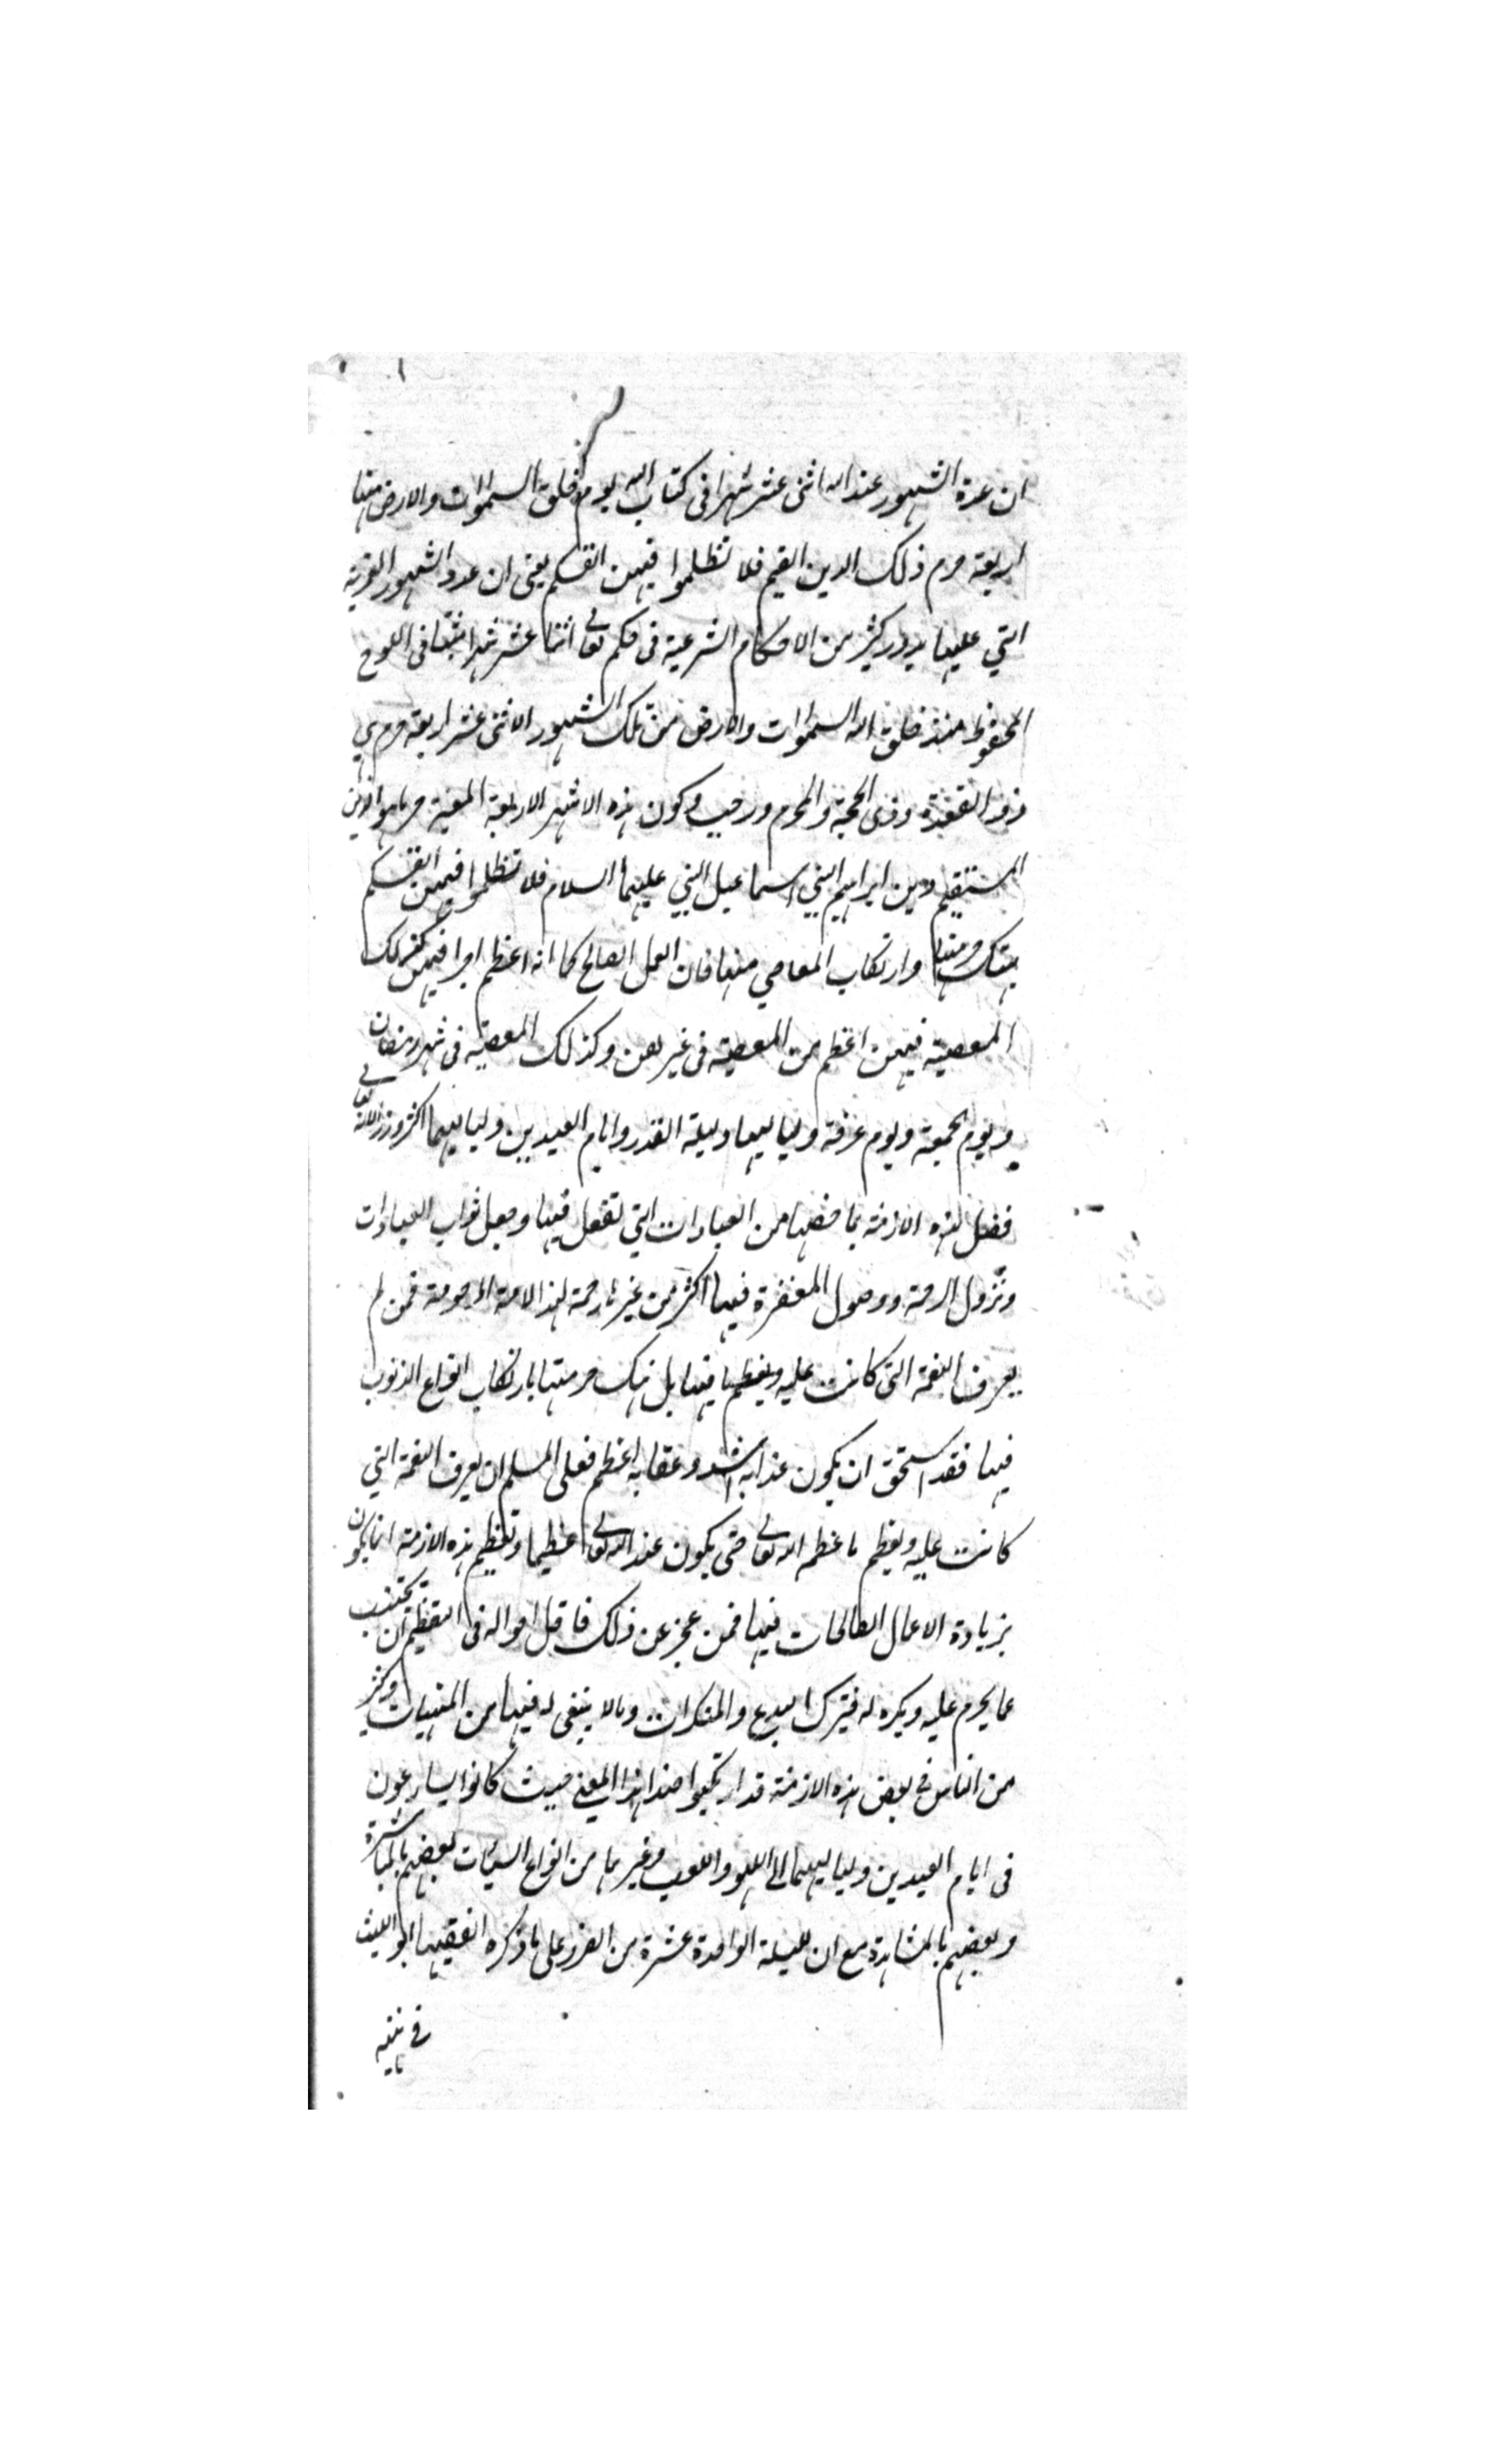 ان عدة الشهور عند الله اثنى عشر شهرا فى كتاب الله يوم خلق السموات والارض منها
اربعة حرم ذلك الدين القيم فلا تظلموا فيهن انفسكم يعنى ان عدد الشهور القمرية
التي عليها يدور كثير من الاحكام الشرعية فى حكم تعالى اثنا عشر شهرا مثبتا فى اللوح
المحفوظ منذ خلق الله السموات والارض من تلك الشهور الاثنى عشر اربعة حرم هي
ذو القعدة وذى الحجة والمحرم ورجب وكون هذه الاشهر الاربعة المعينة حرما هو الدين
المستقيم دين ابراهيم النبي اسماعيل النبي عليهما السلام فلا تظلموا فيهن انفسكم
بهتك حرمتها وارتكاب المعاصي منها فان العمل الصالح كما انه اعظم اجرا فيهن كذلك
المعصية فيهن اعظم من المعصية فى غيرهن وكذلك المعصية فى شهر رمضان
ويوم الجمعة ويوم عرفة ولياليها وليلة القدر وايام العيدين ولياليهما اكثر وزرا لانه تعالى
فضل هذه الازمنة بما خصها من العبادات التي تفعل فيها وجعل ثواب العبادات
ونزول الرحمة ووصول المغفرة فيها اكثر من غيرها رحمة لهذا الامة المرحومة فمن لم
يعرف النعمة التى كانت عليه ويعظمها فيها بل هتك حرمتها بارتكاب انواع الذنوب
فيها فقد استحق ان يكون عذابه اشد وعقابه اعظم فعلى المسلم ان يعرف النعمة التي
كانت عليه ويعظم ما عظمه الله تعالى حتى يكون عند الله تعالى عظيما وتعظيم هذه الازمنة انما يكون
بزيادة الاعمال الصالحات فيها فمن عجز عن ذلك فاقل احواله فى التعظيم ان يجتنب
عما يحرم عليه ويكره له فيترك البدع والمنكرات وما لا ينبغى له فيها من المنهيات وكثير
من الناس في بعض هذه الازمنة قد ارتكبوا ضد هذا المعنى حيث كانوا يسارعون
فى ايام العيدين ولياليهما الى اللهو واللعب وغيرهما من انواع السيئات بعضهم بالمباشرة
وبعضهم بالمشاهدة مع ان لليسلة الواحدة عشرة من الضرر على ما ذكره الفقيه ابو الليث
في تنبيه